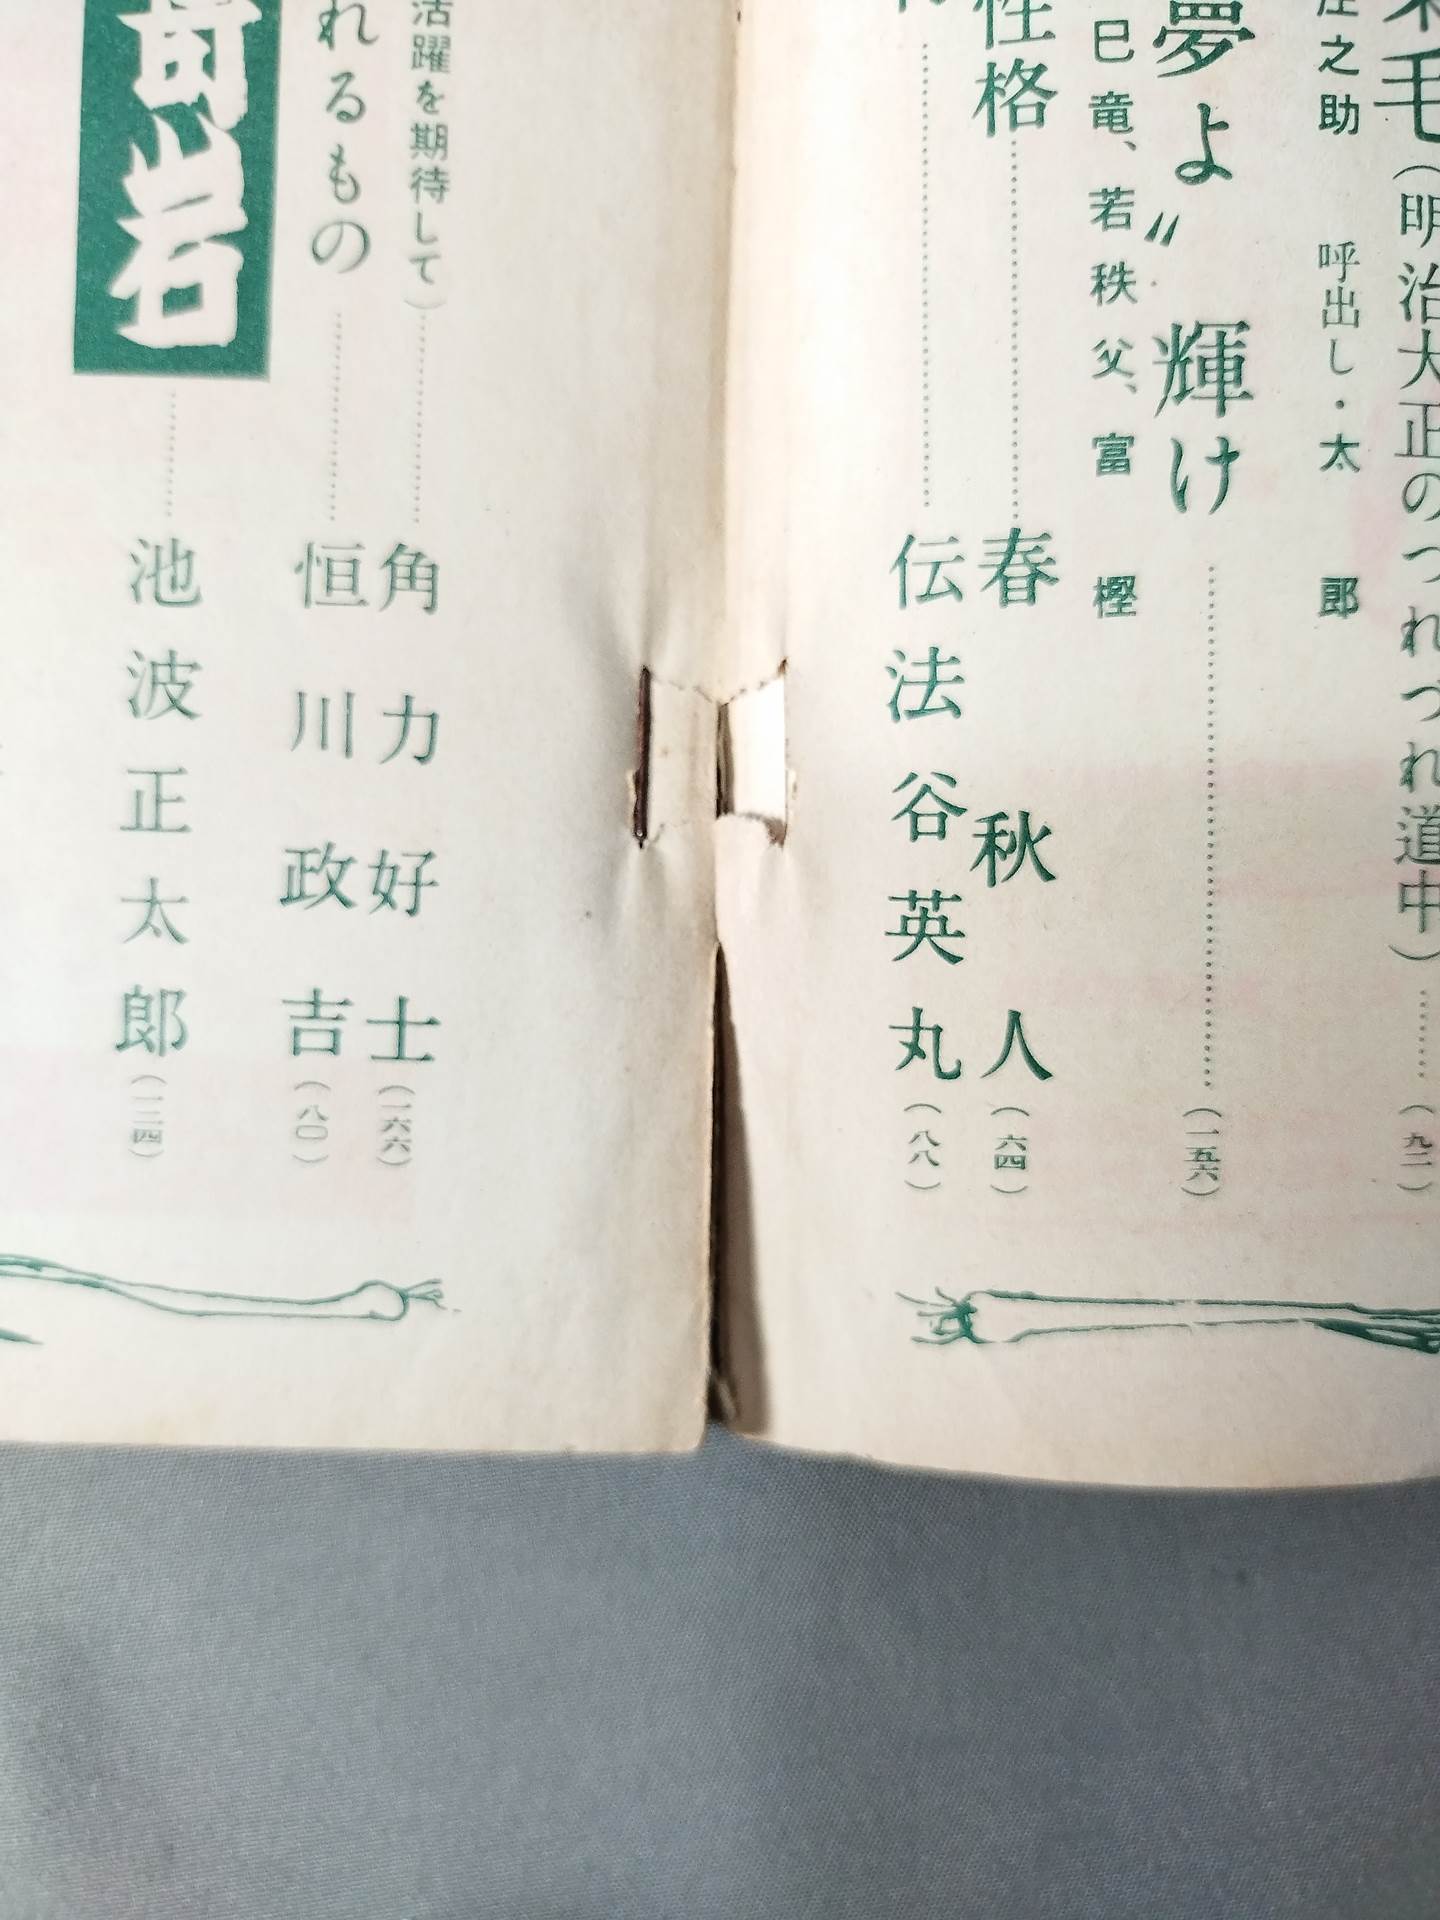 毛（明治大正のつれづれ道中）……（九二）
之助　呼出し・太郎
夢よ〟輝け……（一五六）
巳竜、若秩父、富樫
性格……春秋人（六四）
……伝法谷英丸（八八）
活躍を期待して）……角力好士（一六六）
れるもの……恒川政吉（八〇）
岩……池波正太郎（一二四）